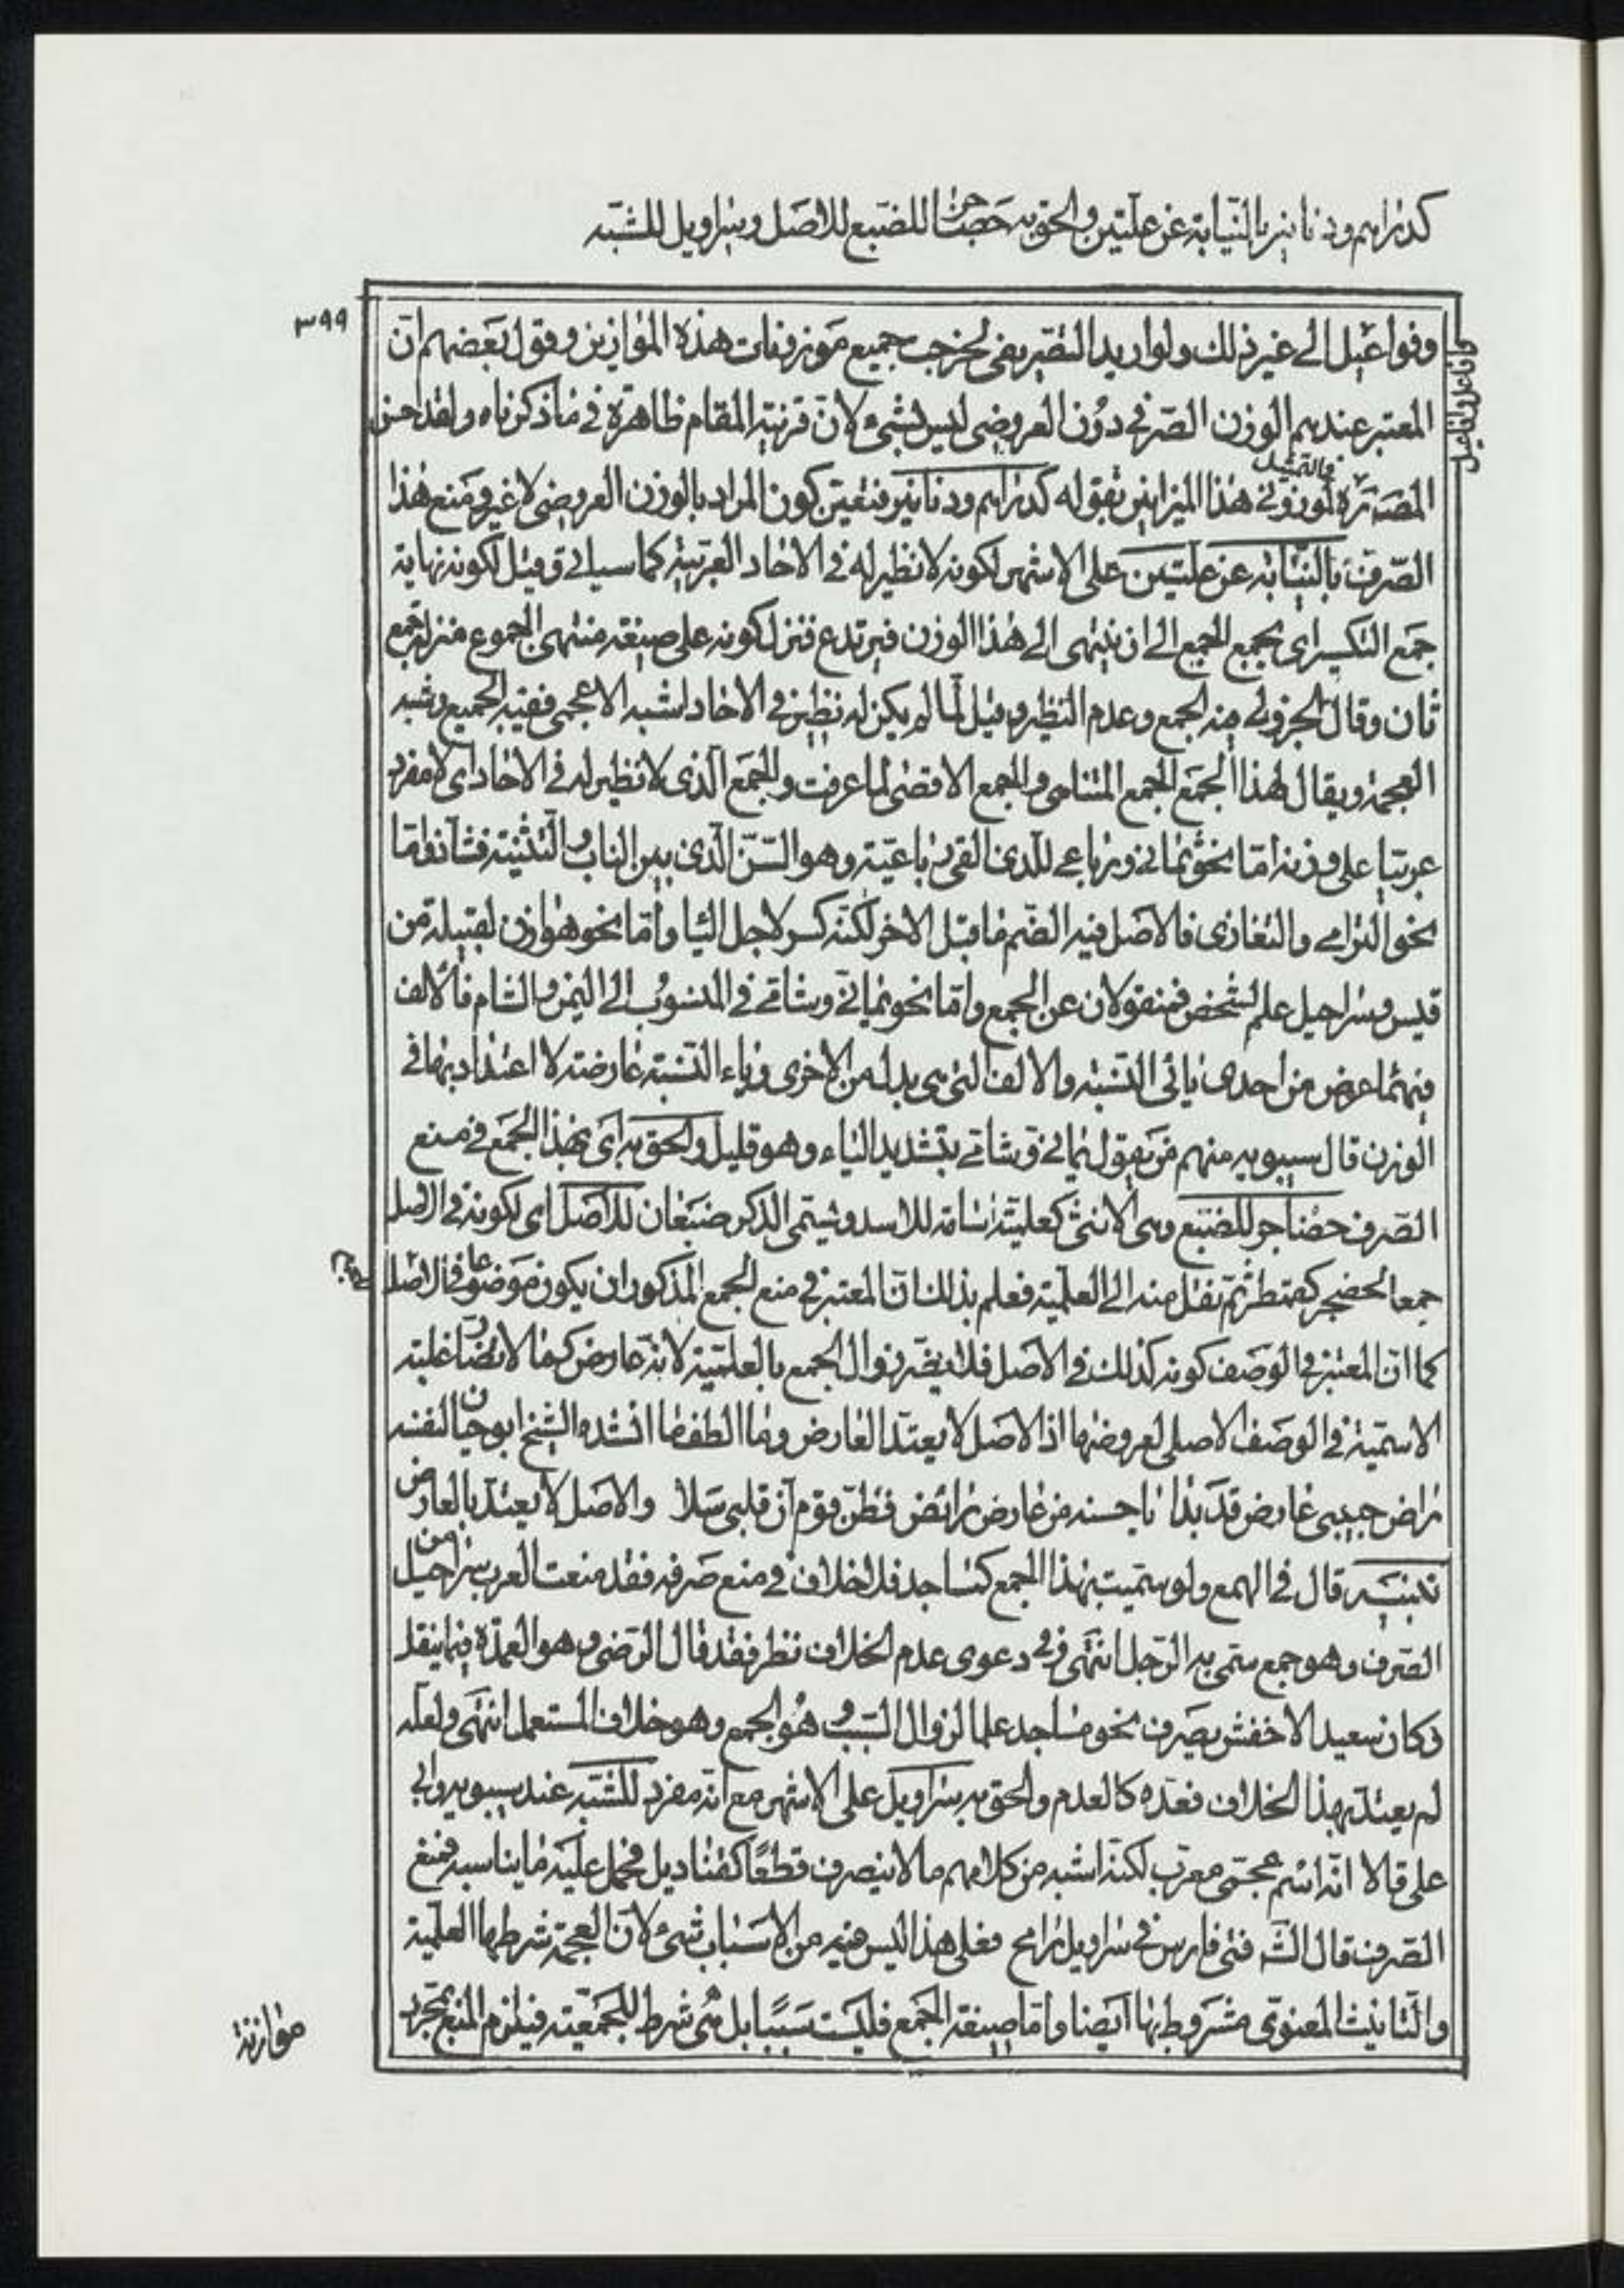 كدراهم ودنانير بالنيابة عن علتين والحق به حضاجر للضبع للاصل وسراويل للشبه
٣٩٩
وفواعيل الى غير ذلك ولو اريد التصريفى لخرجت جميع موزونات هذه الموازين وقول بعضهم ان
المعتبر عندهم الوزن الصرفى دون العروضى ليس بشئ لان قرينة المقام ظاهرة فى ما ذكرناه ولقد احسن
المص ره فى هذا الميزانين بقوله كدراهم ودنانير فتعين كون المراد بالوزن العروضى لا غير ومنع هذا
الصرف بالنيابة عن علتين على الاشهر لكونه لا نظير له فى الاحاد العربية كما سياتى وقيل لكونه نهاية
جمع التكسير اى يجمع الجمع الى ان ينتهى الى هذا الوزن فيرتدع فنزل كونه على صيغة منتهى الجموع منزلة جمع
ثان وقال الجزولى فيه الجمع وعدم النظير وقيل لما لم يكن له نظير فى الاحاد اشبه الاعجمى ففيه الجمع وشبه
العجمة ويقال لهذا الجمع الجمع المتناهى والجمع الاقصى لما عرفت والجمع الذى لا نظير له فى الاحاد اى لا مفرد
عربيا على وزنه اما نحو ثمانى ورباعى للذى القى رباعيته وهو السن الذى بين الناب والثنية فشاذ واما
نحو الترامى والتغازى فالاصل فيه الضم ما قبل الاخر لكنه كسر لاجل اليا واما نحو هوازن لقبيلة من
قيس وشراحيل علم لشخص فمنقولان عن الجمع واما نحو يمانى وشامى فى المنسوب الى اليمن والشام فالالف
فيهما عوض من احدى يائى النسبة والالف التى هى بدل من الاخرى وياء النسبة عارضة لا اعتداد بها فى
الوزن قال سيبويه منهم من يقول يمانى وشامى بتشديد الياء وهو قليل والحق به اى بهذا الجمع فى منع
الصرف حضاجر للضبع وهى الانثى كعلمية اسامة للاسد ويسمى الذكر ضبعان للاصل اى لكونه فى الاصل
جمعا لحضجر كقمطر ثم نقل منه الى العلمية فعلم بذلك ان المعتبر فى منع الجمع المذكور ان يكون موضوعا فى الاصل
كما ان المعتبر فى الوصف كونه كذلك فى الاصل فلا يضر زوال الجمع بالعلمية لانه عارض كما لا تضر غلبة
الاسمية فى الوصف الاصلى لعروضها اذ الاصل لا يعتد العارض وما الطف ما انشده الشيخ ابو حيان لنفسه
راض حبيبى عارض قد بدا يا حسنه من عارض رائض فظن قوم ان قلبى سلا والاصل لا يعتد بالعارض
تنبيه قال فى الهمع ولو سميت بهذا الجمع كمساجد فلا خلاف فى منع صرفه فقد منعت العرب شراحيل من
الصرف وهو جمع سمى به الرجل انتهى وفى دعوى عدم الخلاف نظر فقد قال الرضى وهو العمدة فيما ينقل
وكان سعيد الاخفش يصرف نحو مساجد علما لزوال السبب وهو الجمع وهو خلاف المستعمل انتهى ولعله
لم يعتد بهذا الخلاف فعده كالعدم والحق به سراويل على الاشهر مع انه مفرد للشبه عند سيبويه وابى
على قالا انه اسم عجمى معرب لكنه اشبه من كلامهم ما لا ينصرف قطعا كقناديل فحمل عليه ما يناسبه فمنع
الصرف قال الش فتى فارس فى سراويل رامح فعلى هذا ليس فيه من الاسباب شئ لان العجمة شرطها العلمية
والتانيث المعنوى مشروط بها ايضا واما صيغة الجمع فليست سببا بل هى شرط للجمعية فيلزم المنع بمجرد
موازنة